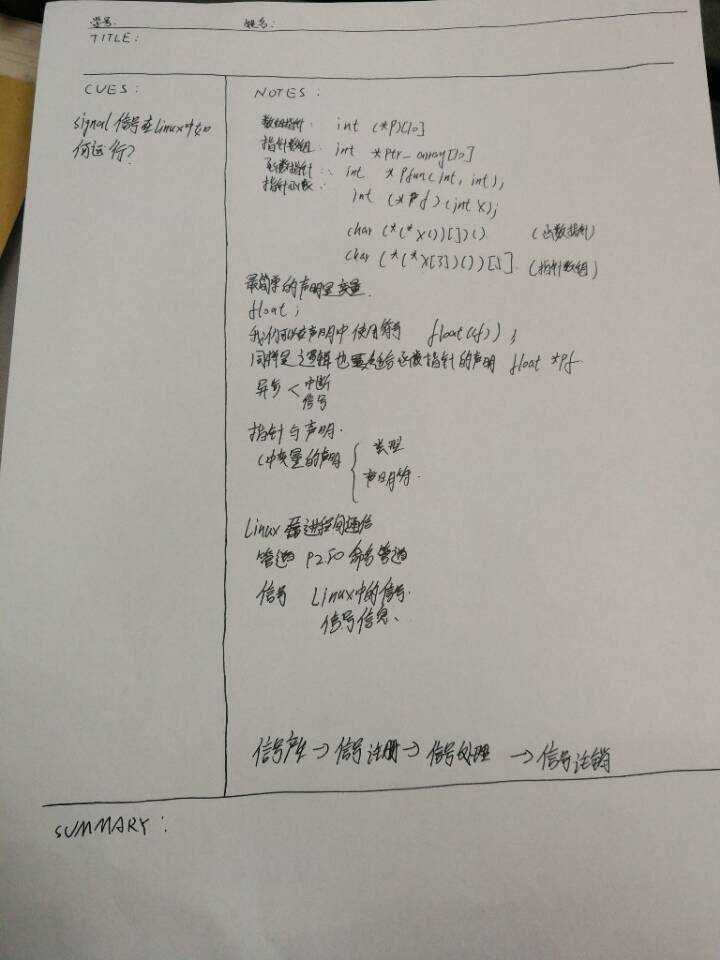 学号: 姓名:
TITLE:
CUES:
signal信号在Linux中如
何运行?
NOTES:
数组指针: int (*P)[10]
指针数组: int *ptr_array[10]
函数指针: int *Pfun(int, int);
指针函数: int (*Pf)(int x);
char (*(*x())[])() (函数指针)
char (*(*x[3])())[5]. (指针数组)
最简单的声明是变量.
float ;
我们可以在声明中使用符号 float((f)) ;
同样是逻辑也适合函数指针的声明 float *Pf
异步 < 中断
信号
指针与声明.
C中变量的声明 { 类型
声明符.
Linux 进程间通信
管道 P250 命名管道
信号 Linux中的信号.
信号信息、
信号产生→信号注册→信号处理 →信号注销
SUMMARY: